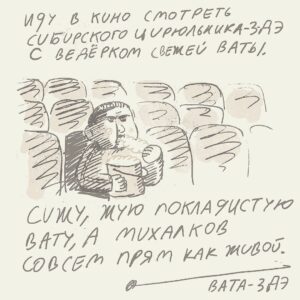 ИДУ В КИНО СМОТРЕТЬ
СИБИРСКОГО ЦИРЮЛЬНИКА-3ДЭ
С ВЕДЁРКОМ СВЕЖЕЙ ВАТЫ.
СИЖУ, ЖУЮ ПОКЛАДИСТУЮ
ВАТУ, А МИХАЛКОВ
СОВСЕМ ПРЯМ КАК ЖИВОЙ.
ВАТА-3ДЭ